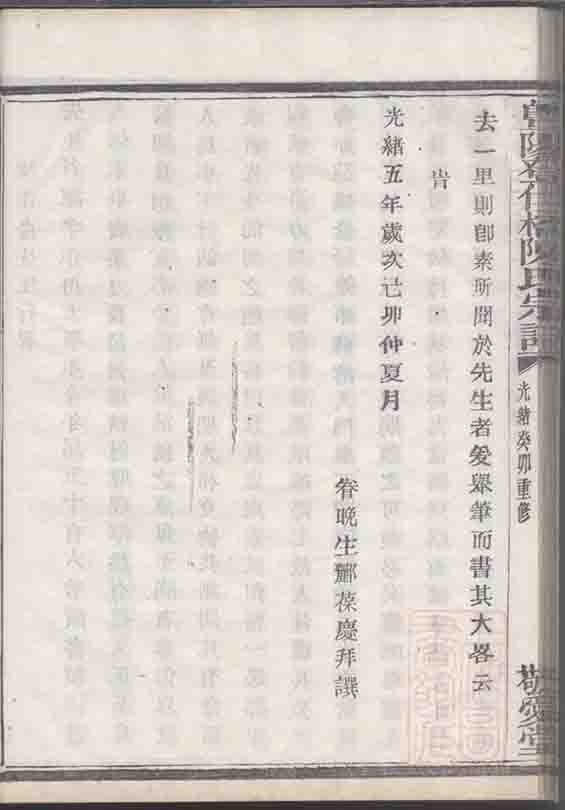 陽橋陳氏宗譜 光緒癸卯重修 敬愛堂
去一里則卽素所聞於先生者爰舉筆而書其大畧云
旹
光緒五年歲次己卯仲夏月
眷晚生酈葆慶拜譔